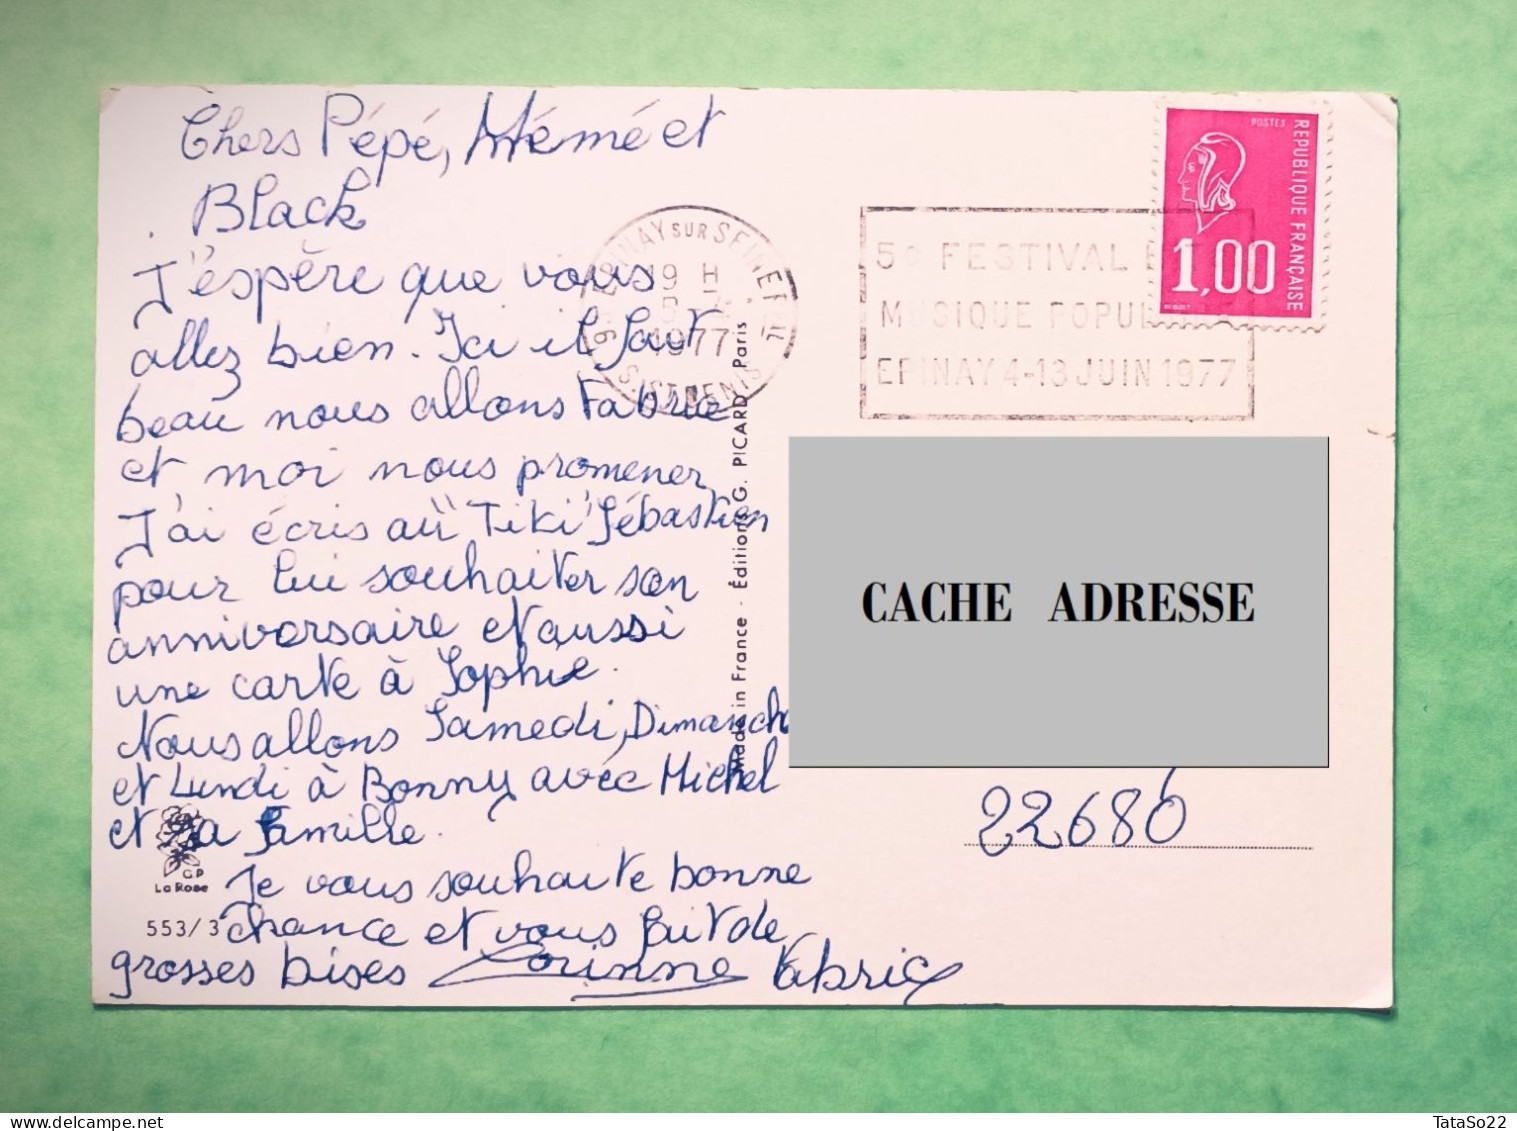 Chers Pépé, Mémé et
Black
J'espère que vous
allez bien. Ici il fait
beau nous allons Fabrice
et moi nous promener
J'ai écris au "Tiki" Sébastien
pour lui souhaiter son
anniversaire et aussi
une carte à Sophie.
Nous allons Samedi, Dimanche
et Lundi à Bonny avec Michel
et sa famille.
Je vous souhaite bonne
chance et vous fait de
grosses bises Corinne Fabrice
GP
La Rose
553/3
Made in France - Éditions G. PICARD Paris
EPINAY SUR SEINE
19 H
1977
ST DENIS
5e FESTIVAL
MUSIQUE POPULAIRE
EPINAY 4-13 JUIN 1977
POSTES
REPUBLIQUE FRANÇAISE
1,00
CACHE ADRESSE
22680
TataSo22